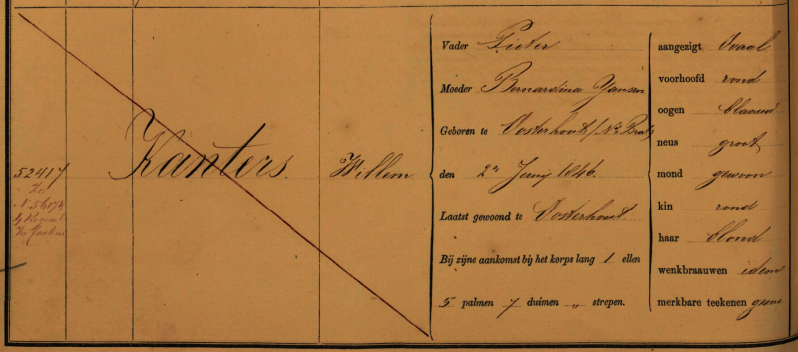 52417
Zie
N. 56174
Kanters.
Willem
Vader Pieter
Moeder Bernardina Jansen
Geboren te Oosterhout (N. Brab.
den 2n Junij 1846.
Laatst gewoond te Oosterhout
Bij zijne aankomst bij het korps lang 1 ellen
5 palmen 7 duimen „ strepen.
aangezigt Ovaal
voorhoofd rond
oogen blaauw
neus groot
mond gewoon
kin rond
haar blond
wenkbraauwen idem
merkbare teekenen geene